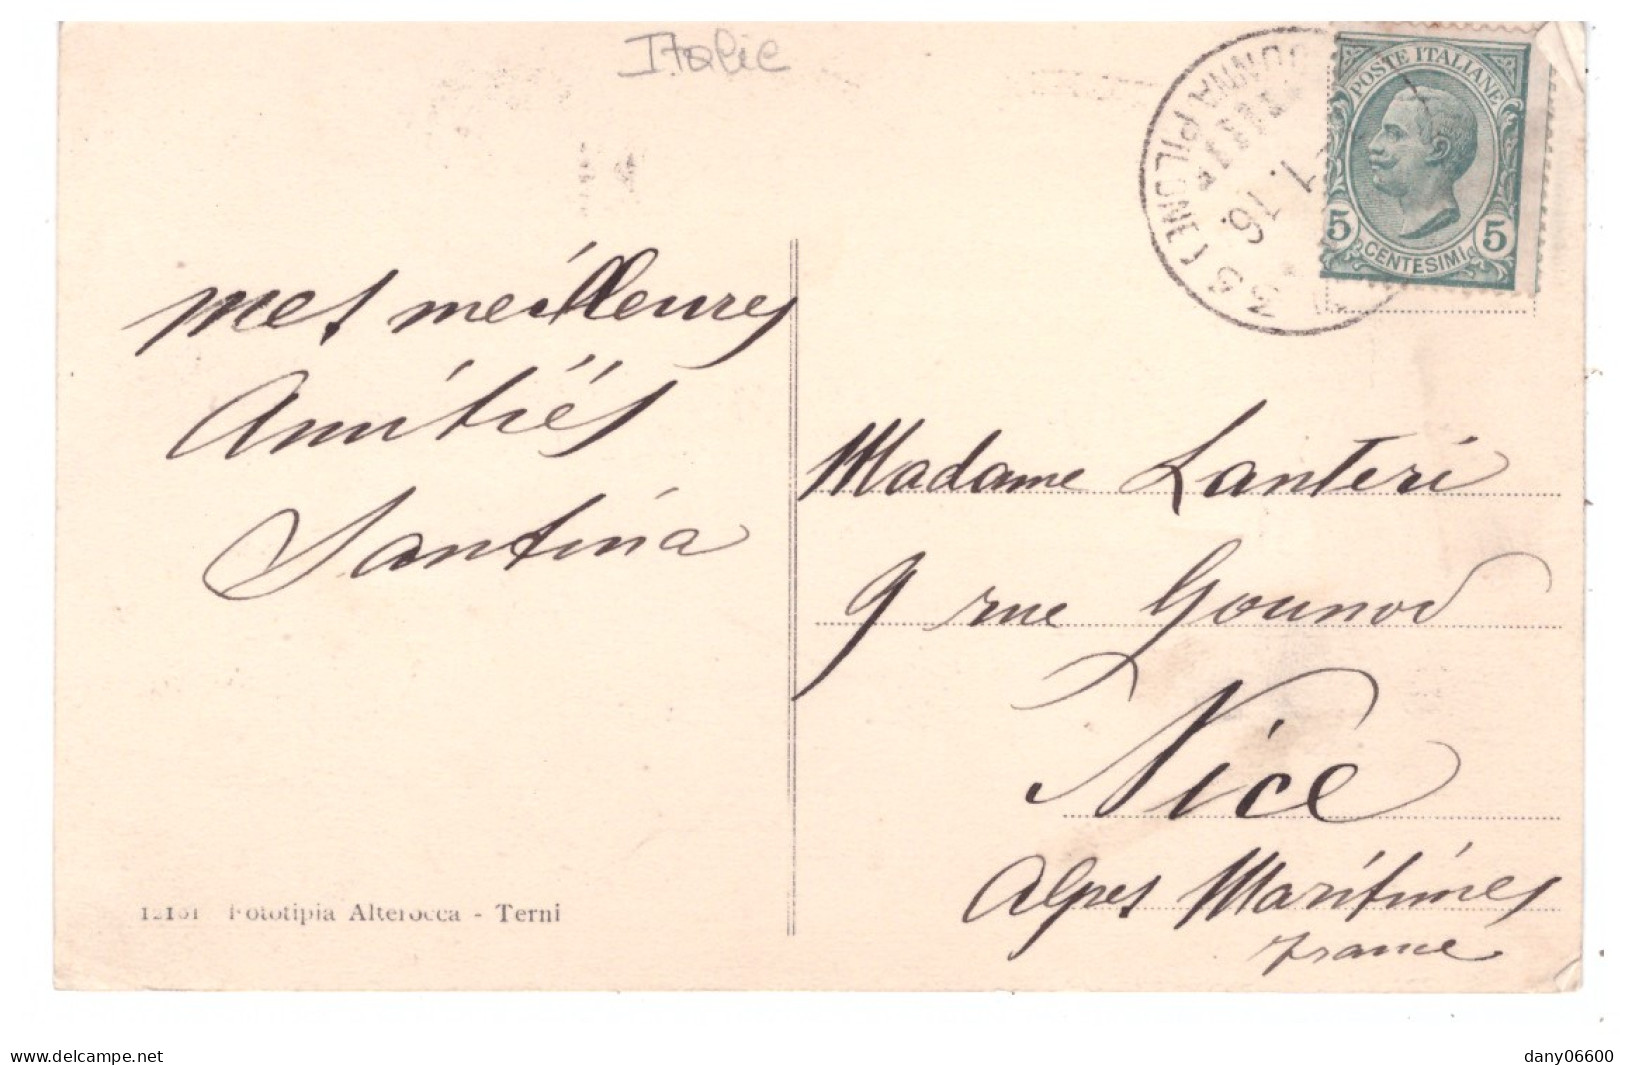 Italie
POSTE ITALIANE
5 5
CENTESIMI
PILONE (
16
mes meilleures
Amitiés
Santina
Madame Lanteri
9 rue Gounod
Nice
Alpes Maritimes
france
12161 Fototipia Alterocca - Terni
www.delcampe.net
dany06600